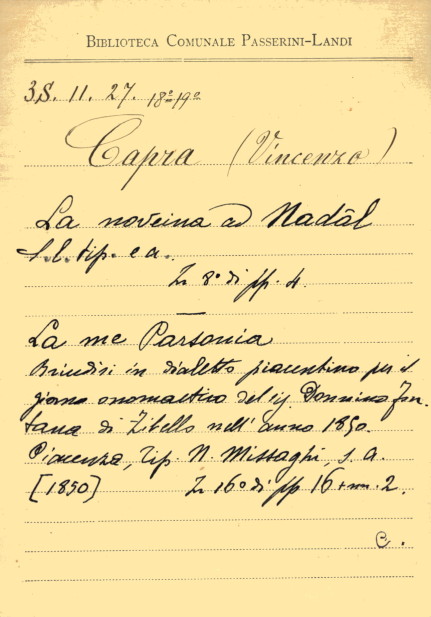 BIBLIOTECA COMUNALE PASSERINI-LANDI
3S. 11. 27. 18º-19º
Capra (Vincenzo)
La noveina ad Nadäl
s.l. tip. e a.
In 8º di pp. 4.
La me Parsonia
Brindisi in dialetto piacentino per il
giorno onomastico del sig. Donnino Fon-
tana di Zibello nell'anno 1850.
Piacenza, Tip. N. Missaghi, s. a.
[1850] In 16º di pp 16 + nn. 2.
C.